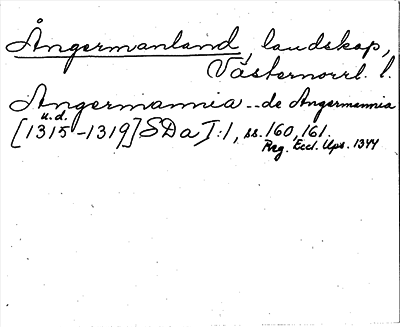 Ångermanland, landskap,
Västernorrl. l.
Angermannia -- de Angermannia
u.d.
[1315-1319] SDa I:1, ss. 160, 161.
Reg. Eccl. Ups. 1344